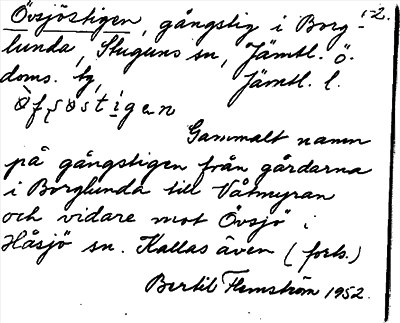 Övsjöstigen, gångstig i Borg- 1-2.
lunda, Stuguns sn, Jämtl. ö.
doms. tg, Jämtl. l.
Gammalt namn
på gångstigen från gårdarna
i Borglunda till Våtmyran
och vidare mot Övsjö i
Håsjö sn. Kallas även (forts.)
Bertil Flemström 1952.